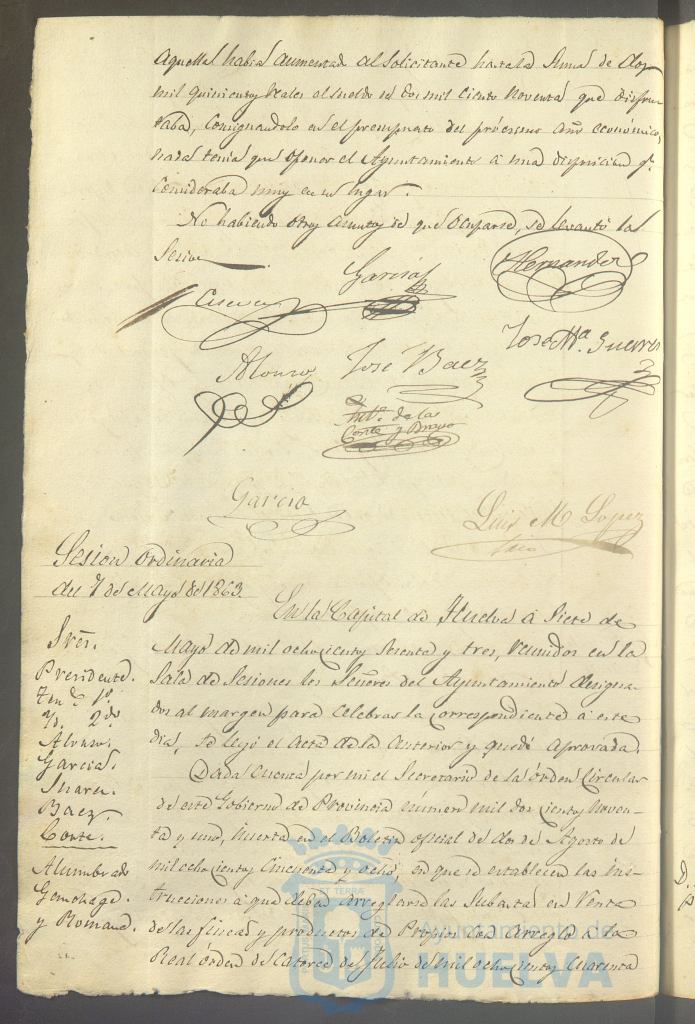 Aquella había aumentado al Solicitante hasta la Suma de dos
mil quinientos reales el sueldo de dos mil ciento noventa que disfru
taba, consignandolo en el presupuesto del próccsimo año económico,
nada tenia que oponer el Ayuntamiento á una disposicion qe.
consideraba muy en su lugar.
No habiendo otros asuntos de que ocuparse, se levantó la
Sesion
García
Hernandez
José Ma. Suarez
Alonso
José Baez
de la
Corte y Bravo
Garcia
Luis M. Lopez
Sesion ordinaria
del 7 de Mayo de 1863.
Sres.
Presidente.
Ten.e 1o.
Yd. 2do
Alonso.
Garcia.
Suarez.
Baez.
Corte.
Alumbrado
y Romano.
En la Capital de Huelva á Siete de
Mayo de mil ochocientos sesenta y tres, reunidos en la
Sala de Sesiones los Señores del Ayuntamiento designa-
dos al margen para celebrar la correspondiente á este
dia, se leyó el acta de la anterior y quedó aprovada.
Dada cuenta por mi el Secretario de la órden circular
de este Gobierno de Provincia número mil dos cientos noven-
ta y uno, inserta en el Boletin oficial de dos de Agosto de
mil ochocientos cincuenta y ocho, en que se establecen las ins-
trucciones á que deben arreglarse las Subastas en Venta
de las fincas y productos de Propios con arreglo á la
Real órden de catorce de Julio de mil ochocientos cuarenta
ET TERRÆ
Ayuntamiento de
HUELVA